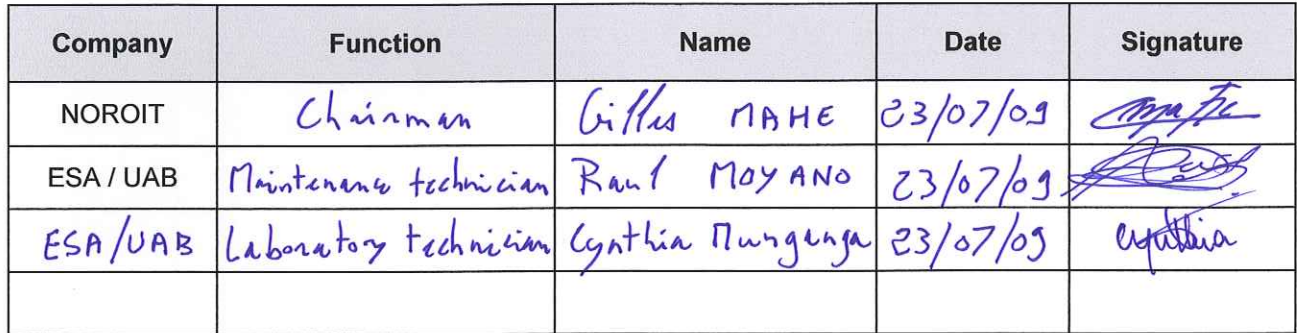 Company Function Name Date Signature
NOROIT Chairman Gilles MAHE 23/07/09
ESA / UAB Maintenance technician Raul MOYANO 23/07/09
ESA/UAB Laboratory technician Cynthia Munganga 23/07/09 Cynthia